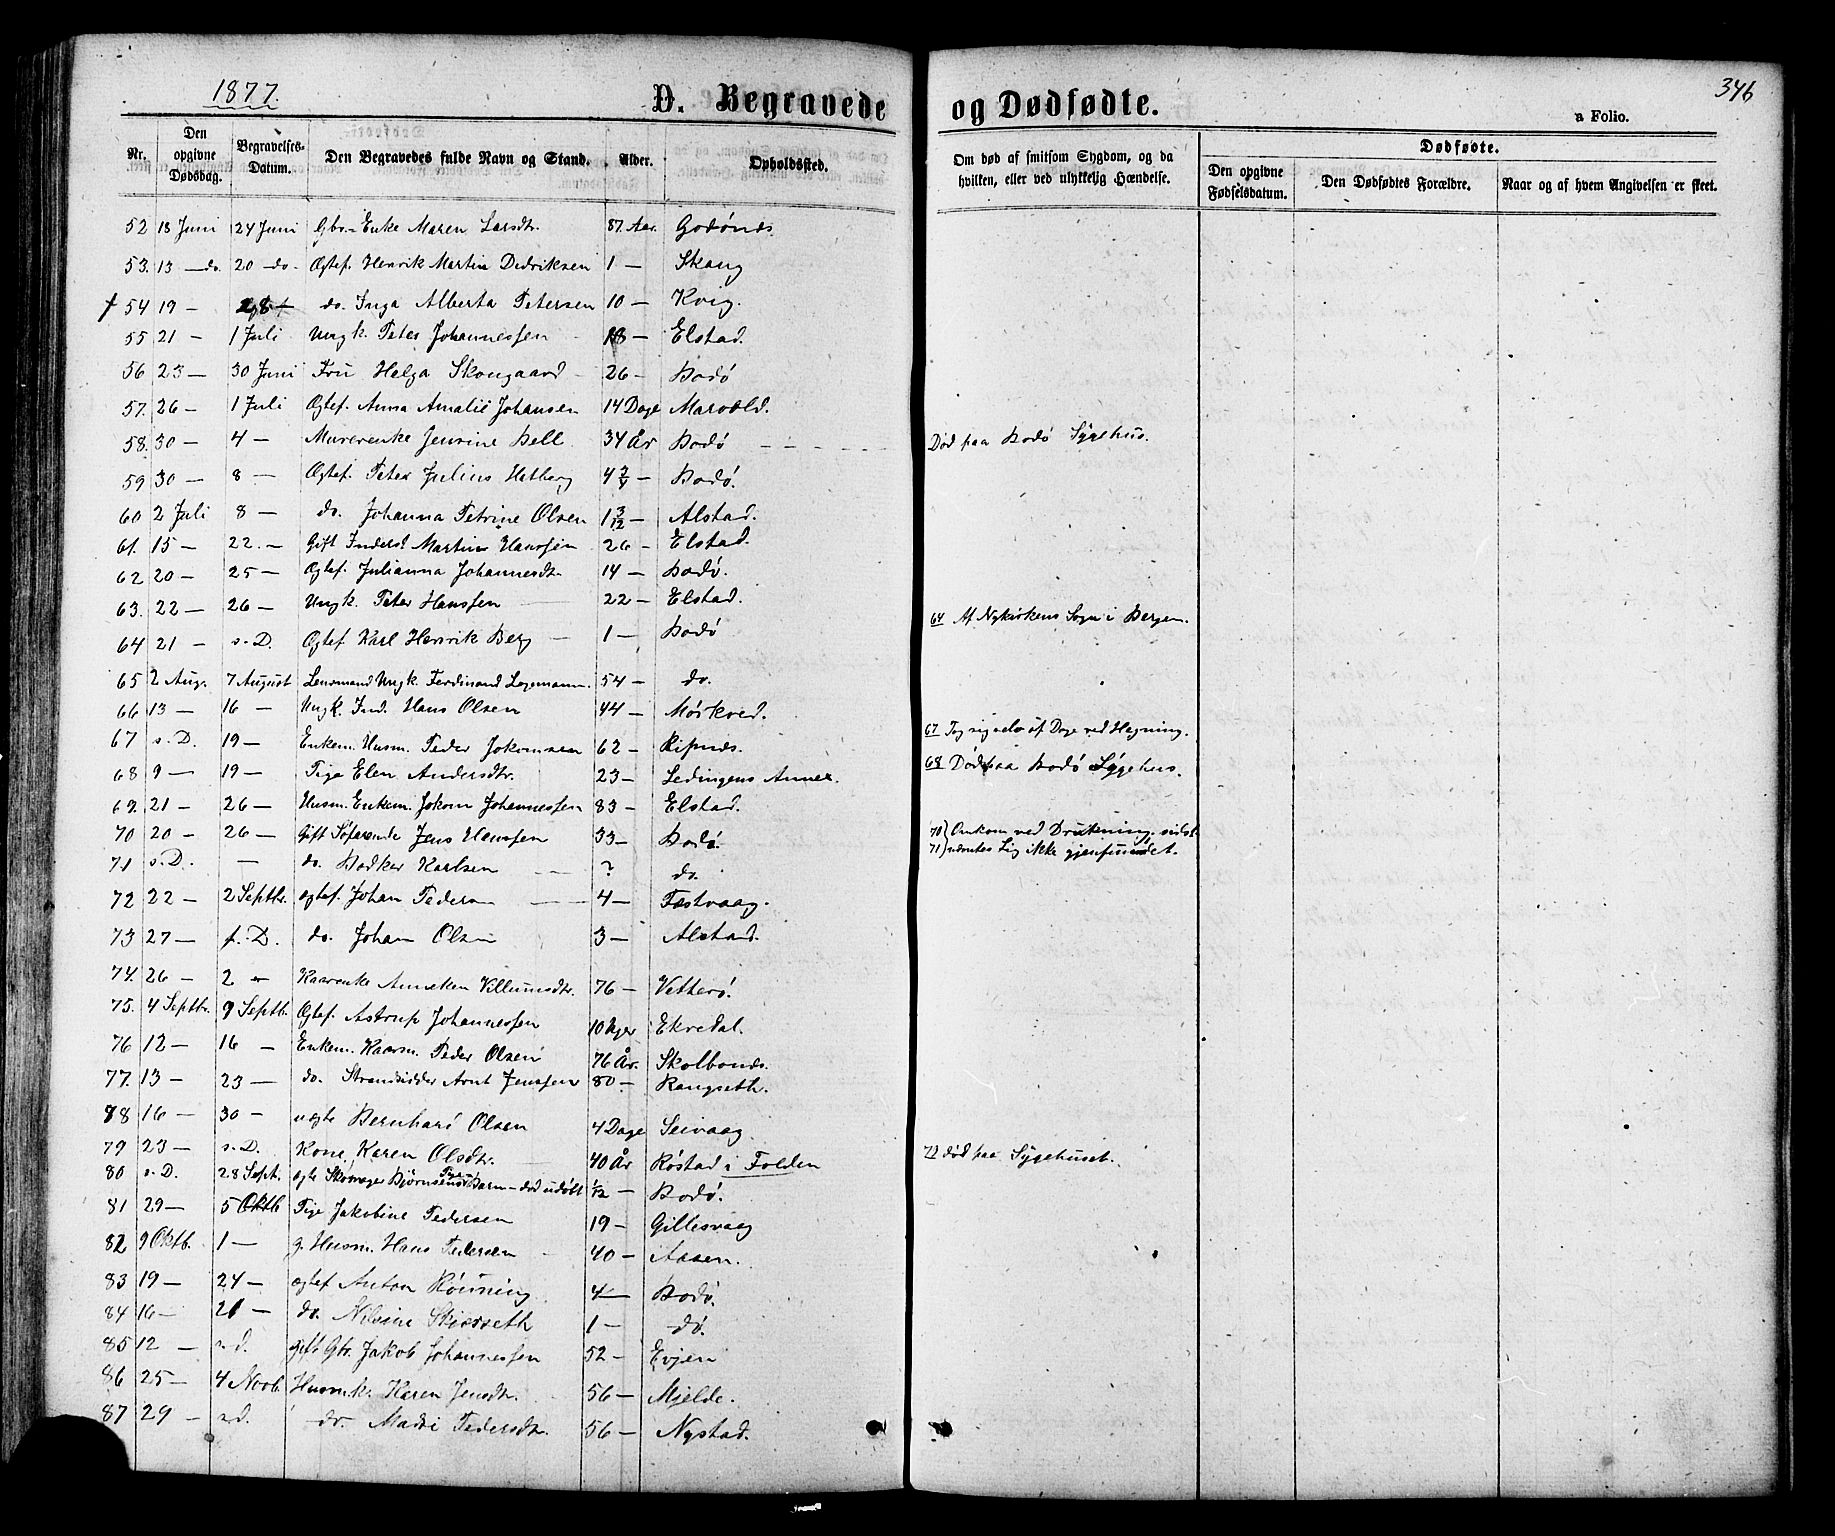 1877.
D. Begravede
og Dødfødte.
346
a Folio.
Nr.
Den opgivne Dødsdag.
Begravelses-Datum.
Den Begravedes fulde Navn og Stand.
Alder.
Opholdssted.
Om død af smitsom Sygdom, og da hvilken, eller ved ulykkelig Hændelse.
Dødfødte.
Den opgivne Fødselsdatum.
Den Dødfødtes Forældre.
Naar og af hvem Angivelsen er skeet.
52 18 Juni 24 Juni Gbr. Enke Maren Larsdtr. 87 Aar. Godønes.
53. 13 — do. 20 — do. Ogtef. Henrik Martin Didriksen 1 — Skaug
54 19 — do. Inga Alberta Petersen 10 — Kvig.
55 21 — 1 Juli Ungk. Peter Johannessen 18 — Elstad.
56 23 — 30 Juni Fru Helga Skougaard 26 — Bodø
57. 26 — 1 Juli Ogtef. Anna Amalie Johansen 14 Dage Marvold.
58. 30 — 4 — Murerenke Jensine Bell 34 År Bodø Død paa Bodø Sygehus.
59 30 — 8 — Ogtef. Peter Julius Hetberg 4 Bodø.
60 2 Juli 8 — do. Johanna Petrine Olsen 1 3/12 — Alstad.
61. 15 — 22. — Gift Inderst Martin Hanssen 26 — Elstad.
62 20 — 25 — Ogtef. Julianna Johannesdtr 14 — Bodø.
63. 22 — 26 — Ungk. Peter Hanssen 22 — Elstad.
64 21 — s. D. Ogtef Karl Henrik Berg 1 — Bodø 64 Af Nykirkens Sogn i Bergen.
65 2 Aug. 7 August Lensmand Ungk. Ferdinand Lagemann. 54 — do.
66 13 — 16 — Ungk. Ind. Hans Olsen 44 — Mørkved.
67 s. D. 19 — Enkem. Husm. Peder Jakobsen 62 — Ripnes. 67 Tog sig selv af Dage ved Hægning.
68 9 — 19 — Pige Elen Andersdtr. 23 — Lødingens Annex. 68 Død paa Bodø Sygehus.
69. 21 — 26 — Husm. Enkem. Jakob Johannessen 83 — Elstad.
70 20 — 26 — Gift Søfarende Jens Hanssen 33 — Bodø. 70) Omkom ved Drukning, sidst-
71 s. D. — do. Bødker Karlsen ? do. 71) nævntes Lig ikke gjenfundet.
72 22 — 2 Septbr. ogtef. Johan Pedersen 4 — Fastvaag.
73 27 — f. D. do. Johan Olsen 3 — Alstad.
74. 26 — 2 — Kaarenke Anneken Villumsdtr. 76 — Vetterø.
75. 4 Septbr. 9 Septb. Ogtef. Astrup Johannessen 10 Uger Ekredal.
76 12 — 16 — Enkem. Kaarm. Peder Olsen 76 År. Skolbones.
77. 13 — 23 — do. Strandsidder Arnt Jenssen 80 — Rangseth.
78 16 — 30 — uægte Bernhard Olsen 4 Dage Seivaag.
79 23 — s. D. Kone Karen Olsdtr. 40 År Røstad i Folden 79 død paa Sygehuset.
80 s. D. 28 Sept. ogte Skomager Bjørnsens Barn – død udøbt 1/12 — Bodø.
81 29 — 5 Oktb Pige Jakobine Pedersen 19 — Gillesvaag
82 9 Oktb. 1 — g. Husm. Hans Pedersen 40 — Aasen.
83 19 — 24 — ogtef Anton Rønning 4 — Bodø.
84 16 — 21 — do. Nilsine Skjærseth 1 — do.
85 12 — s. d. gift Gbr. Jakob Johannessen 52 — Evjen
86 25 — 4 Novb. Husmk. Karen Jensdtr. 56 — Mjelde.
87 29 — s d. do. Madsi Pedersdtr. 56 — Nystad.